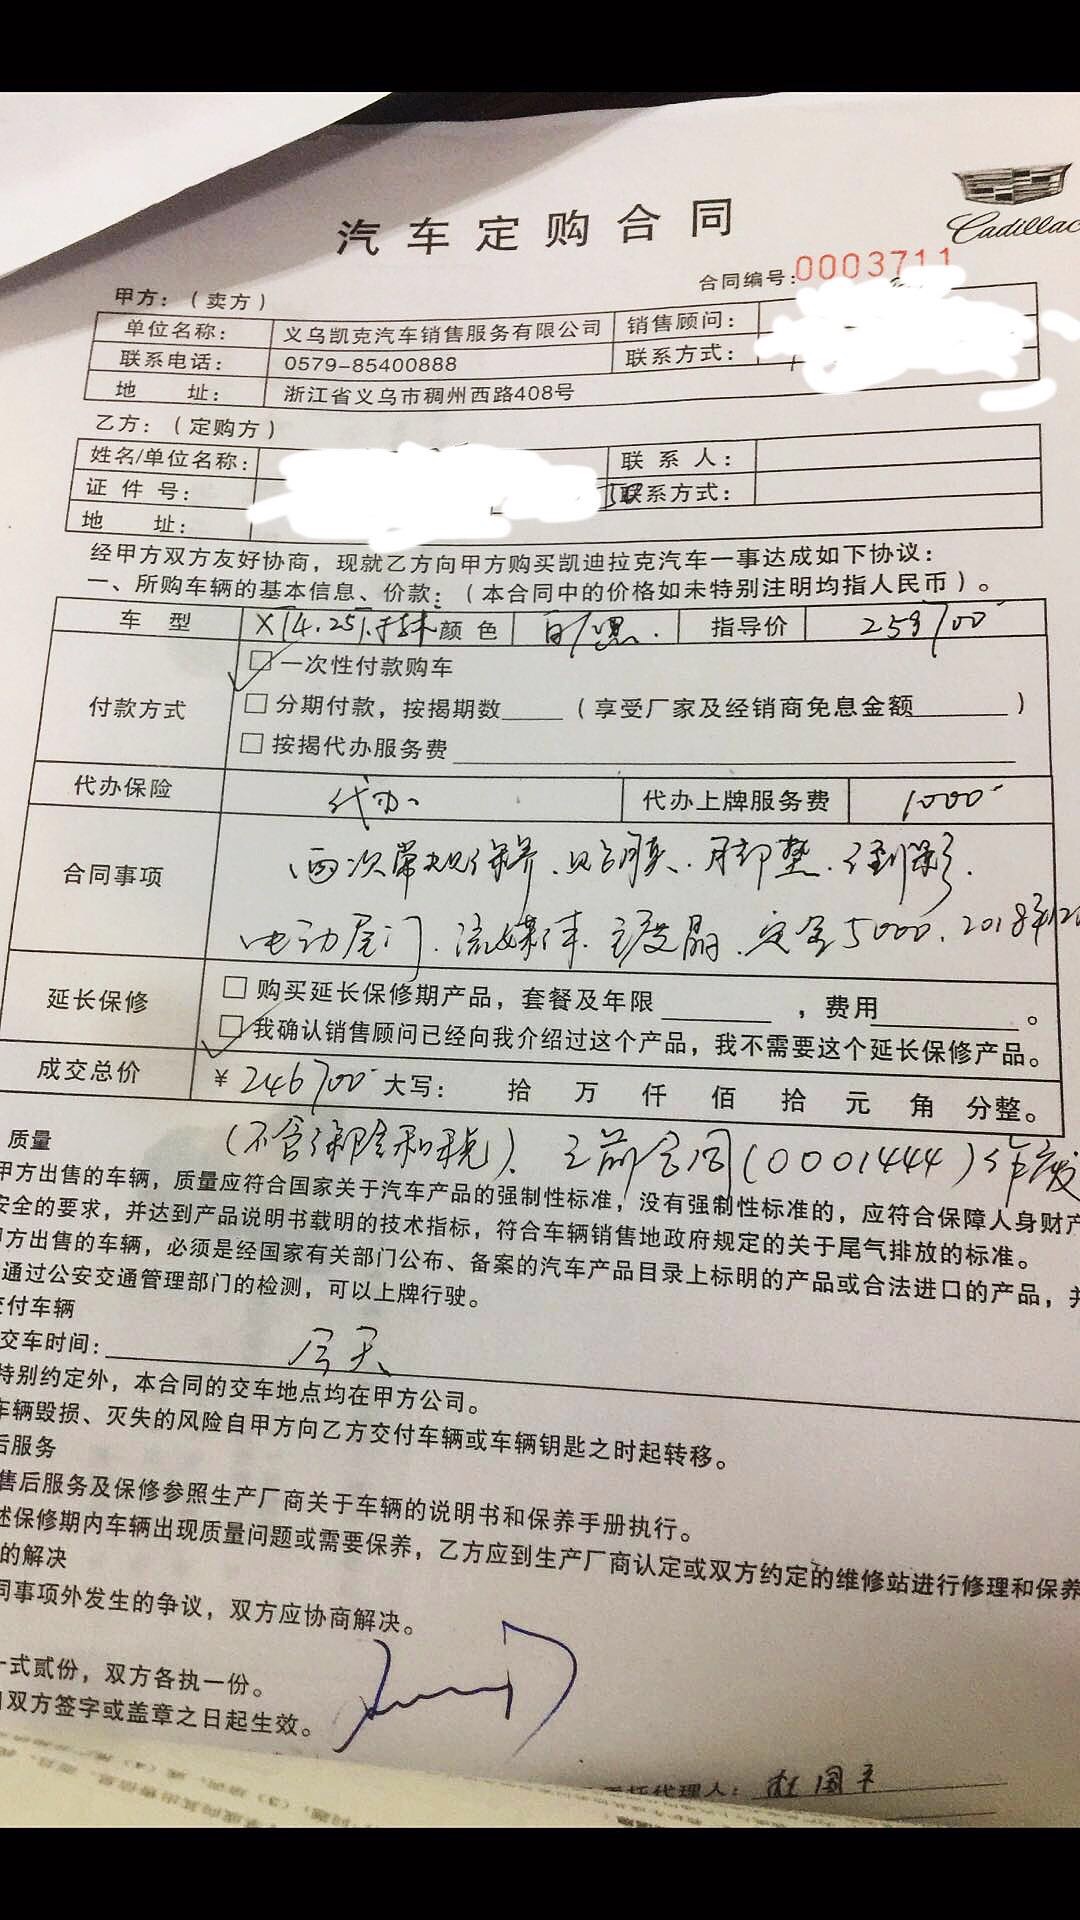 Cadillac
汽车定购合同
合同编号:0003711
甲方:(卖方)
单位名称: 义乌凯克汽车销售服务有限公司 销售顾问:
联系电话: 0579-85400888 联系方式:
地 址: 浙江省义乌市稠州西路408号
乙方:(定购方)
姓名/单位名称: 联系人:
证件号: 联系方式:
地 址:
经甲方双方友好协商,现就乙方向甲方购买凯迪拉克汽车一事达成如下协议:
一、所购车辆的基本信息、价款:(本合同中的价格如未特别注明均指人民币)。
车 型 颜色 指导价 259700
付款方式
□一次性付款购车
□分期付款,按揭期数____(享受厂家及经销商免息金额______)
□按揭代办服务费
代办保险 代办. 代办上牌服务费 1000
合同事项
两次常规保养、贴膜、脚垫、倒影.
电动尾门、流媒体、镀晶、定金5000、2018年
延长保修
□购买延长保修期产品,套餐及年限______,费用______。
□我确认销售顾问已经向我介绍过这个产品,我不需要这个延长保修产品。
成交总价 ¥ 246700 大写: 拾 万 仟 佰 拾 元 角 分整。
(不含保险和税)、之前合同(0001444)作废
质量
甲方出售的车辆,质量应符合国家关于汽车产品的强制性标准,没有强制性标准的,应符合保障人身财产
安全的要求,并达到产品说明书载明的技术指标,符合车辆销售地政府规定的关于尾气排放的标准。
甲方出售的车辆,必须是经国家有关部门公布、备案的汽车产品目录上标明的产品或合法进口的产品,并
通过公安交通管理部门的检测,可以上牌行驶。
交付车辆
交车时间: 今天
特别约定外,本合同的交车地点均在甲方公司。
车辆毁损、灭失的风险自甲方向乙方交付车辆或车辆钥匙之时起转移。
后服务
售后服务及保修参照生产厂商关于车辆的说明书和保养手册执行。
述保修期内车辆出现质量问题或需要保养,乙方应到生产厂商认定或双方约定的维修站进行修理和保养
的解决
同事项外发生的争议,双方应协商解决。
一式贰份,双方各执一份。
双方签字或盖章之日起生效。
委托代理人: